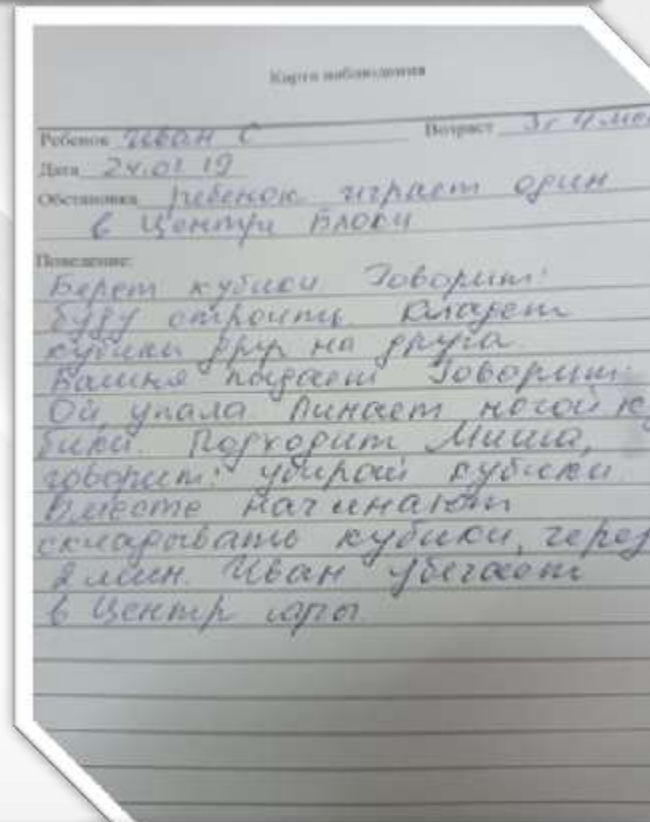 Карта наблюдения
Ребенок Иван С Возраст 3г 4 мес
Дата 24.01.19
Обстановка ребенок играет один
в Центре Блоки
Поведение:
Берет кубики Говорит:
буду строить. Кладет
кубики друг на друга.
Башня падает Говорит:
Ой, упала. Пинает ногой ку
бики. Подходит Миша,
говорит: убирай кубики
Вместе начинают
складывать кубики, через
2 мин. Иван убегает
в Центр